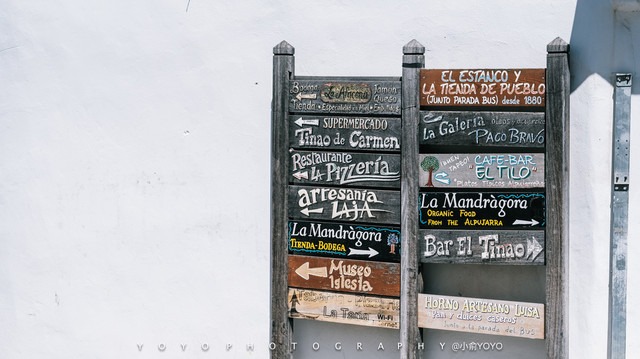 Bodega
Jamon
Queso
Tienda
SUPERMERCADO
Tinao de Carmen
Restaurante
La Pizzería
artesanía
LAJA
La Mandrágora
TIENDA-BODEGA
Museo
Iglesia
Wi-Fi
EL ESTANCO Y
LA TIENDA DE PUEBLO
(JUNTO PARADA BUS) desde 1880
La Galería
PACO BRAVO
¡BUEN TAPEO!
"CAFE-BAR
EL TILO"
La Mandràgora
ORGANIC FOOD
FROM THE ALPUJARRA
Bar El Tinao
HORNO ARTESANO LUISA
Pan y dulces caseros
Junto a la parada del Bus
YOYOPHOTOGRAPHY @小俞YOYO